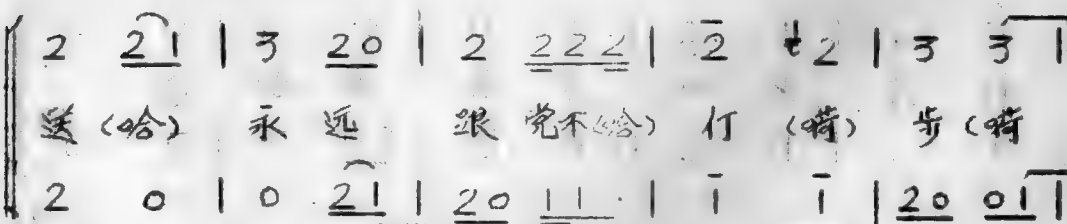 2 2 1 | 3 2 0 | 2 2 2 2 | 2 2 | 3 3
送 (哈) 永 远 跟 党不(哈) 打 (嗬) 步 (嗬
2 0 | 0 2 1 | 2 0 1 1 · | 1 1 | 2 0 0 1